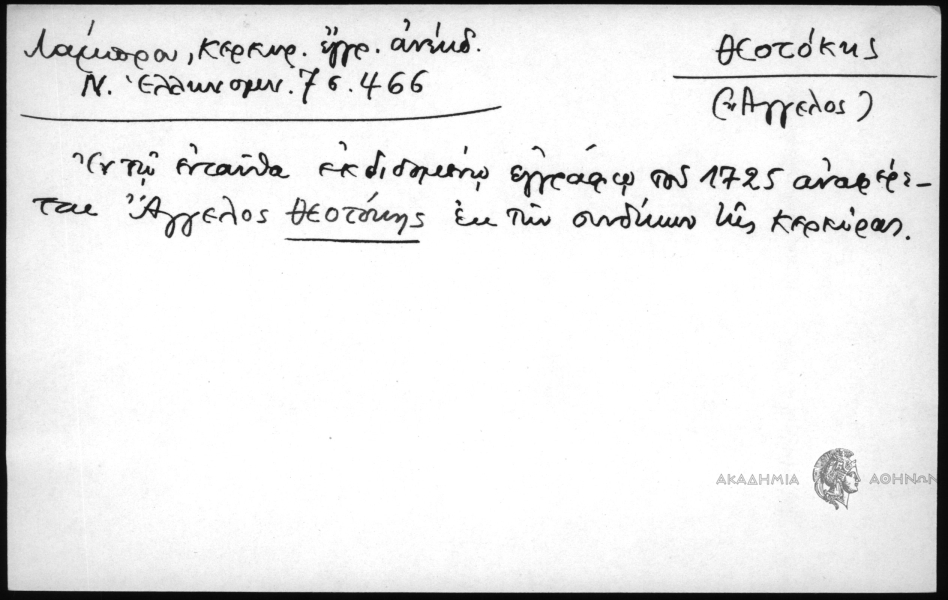 Λάμπρου, Κερκυρ. ἔγγρ. ἀνέκδ.
Ν. Ἑλληνομν. 7 σ. 466
Θεοτόκης
(Ἄγγελος)
Ἐν τῷ ἐνταῦθα ἐκδιδομένῳ ἐγγράφῳ τοῦ 1725 ἀναφέρε-
ται Ἄγγελος Θεοτόκης ἐκ τῶν συνδίκων τῆς Κερκύρας.
ΑΚΑΔΗΜΙΑ ΑΘΗΝΩΝ